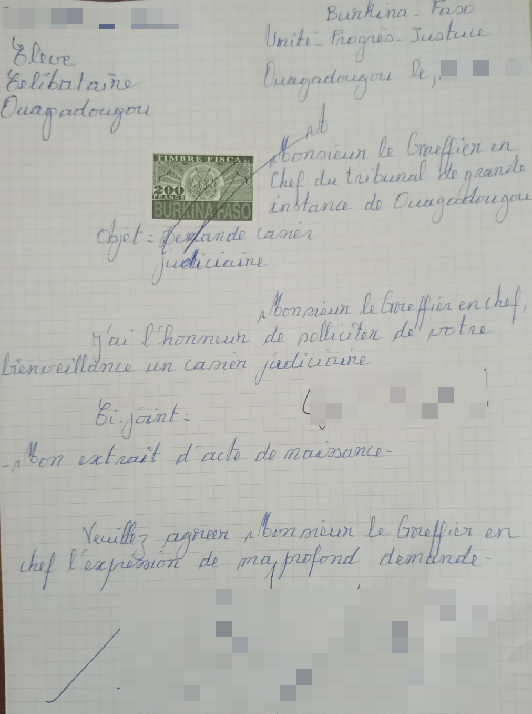 Elève
Célibataire
Ouagadougou
Burkina-Faso
Unité-Progrès-Justice
Ouagadougou le,
A
Monsieur le Greffier en
chef du tribunal de grande
instance de Ouagadougou
TIMBRE FISCAL
200
FRANCS
BURKINA FASO
Objet: Demande casier
judiciaire
Monsieur le Greffier en chef,
j'ai l'honneur de solliciter de votre
bienveillance un casier judiciaire
Ci-joint:
- Mon extrait d'acte de naissance-
Veuillez agréer Monsieur le Greffier en
chef l'expression de ma profond demande-